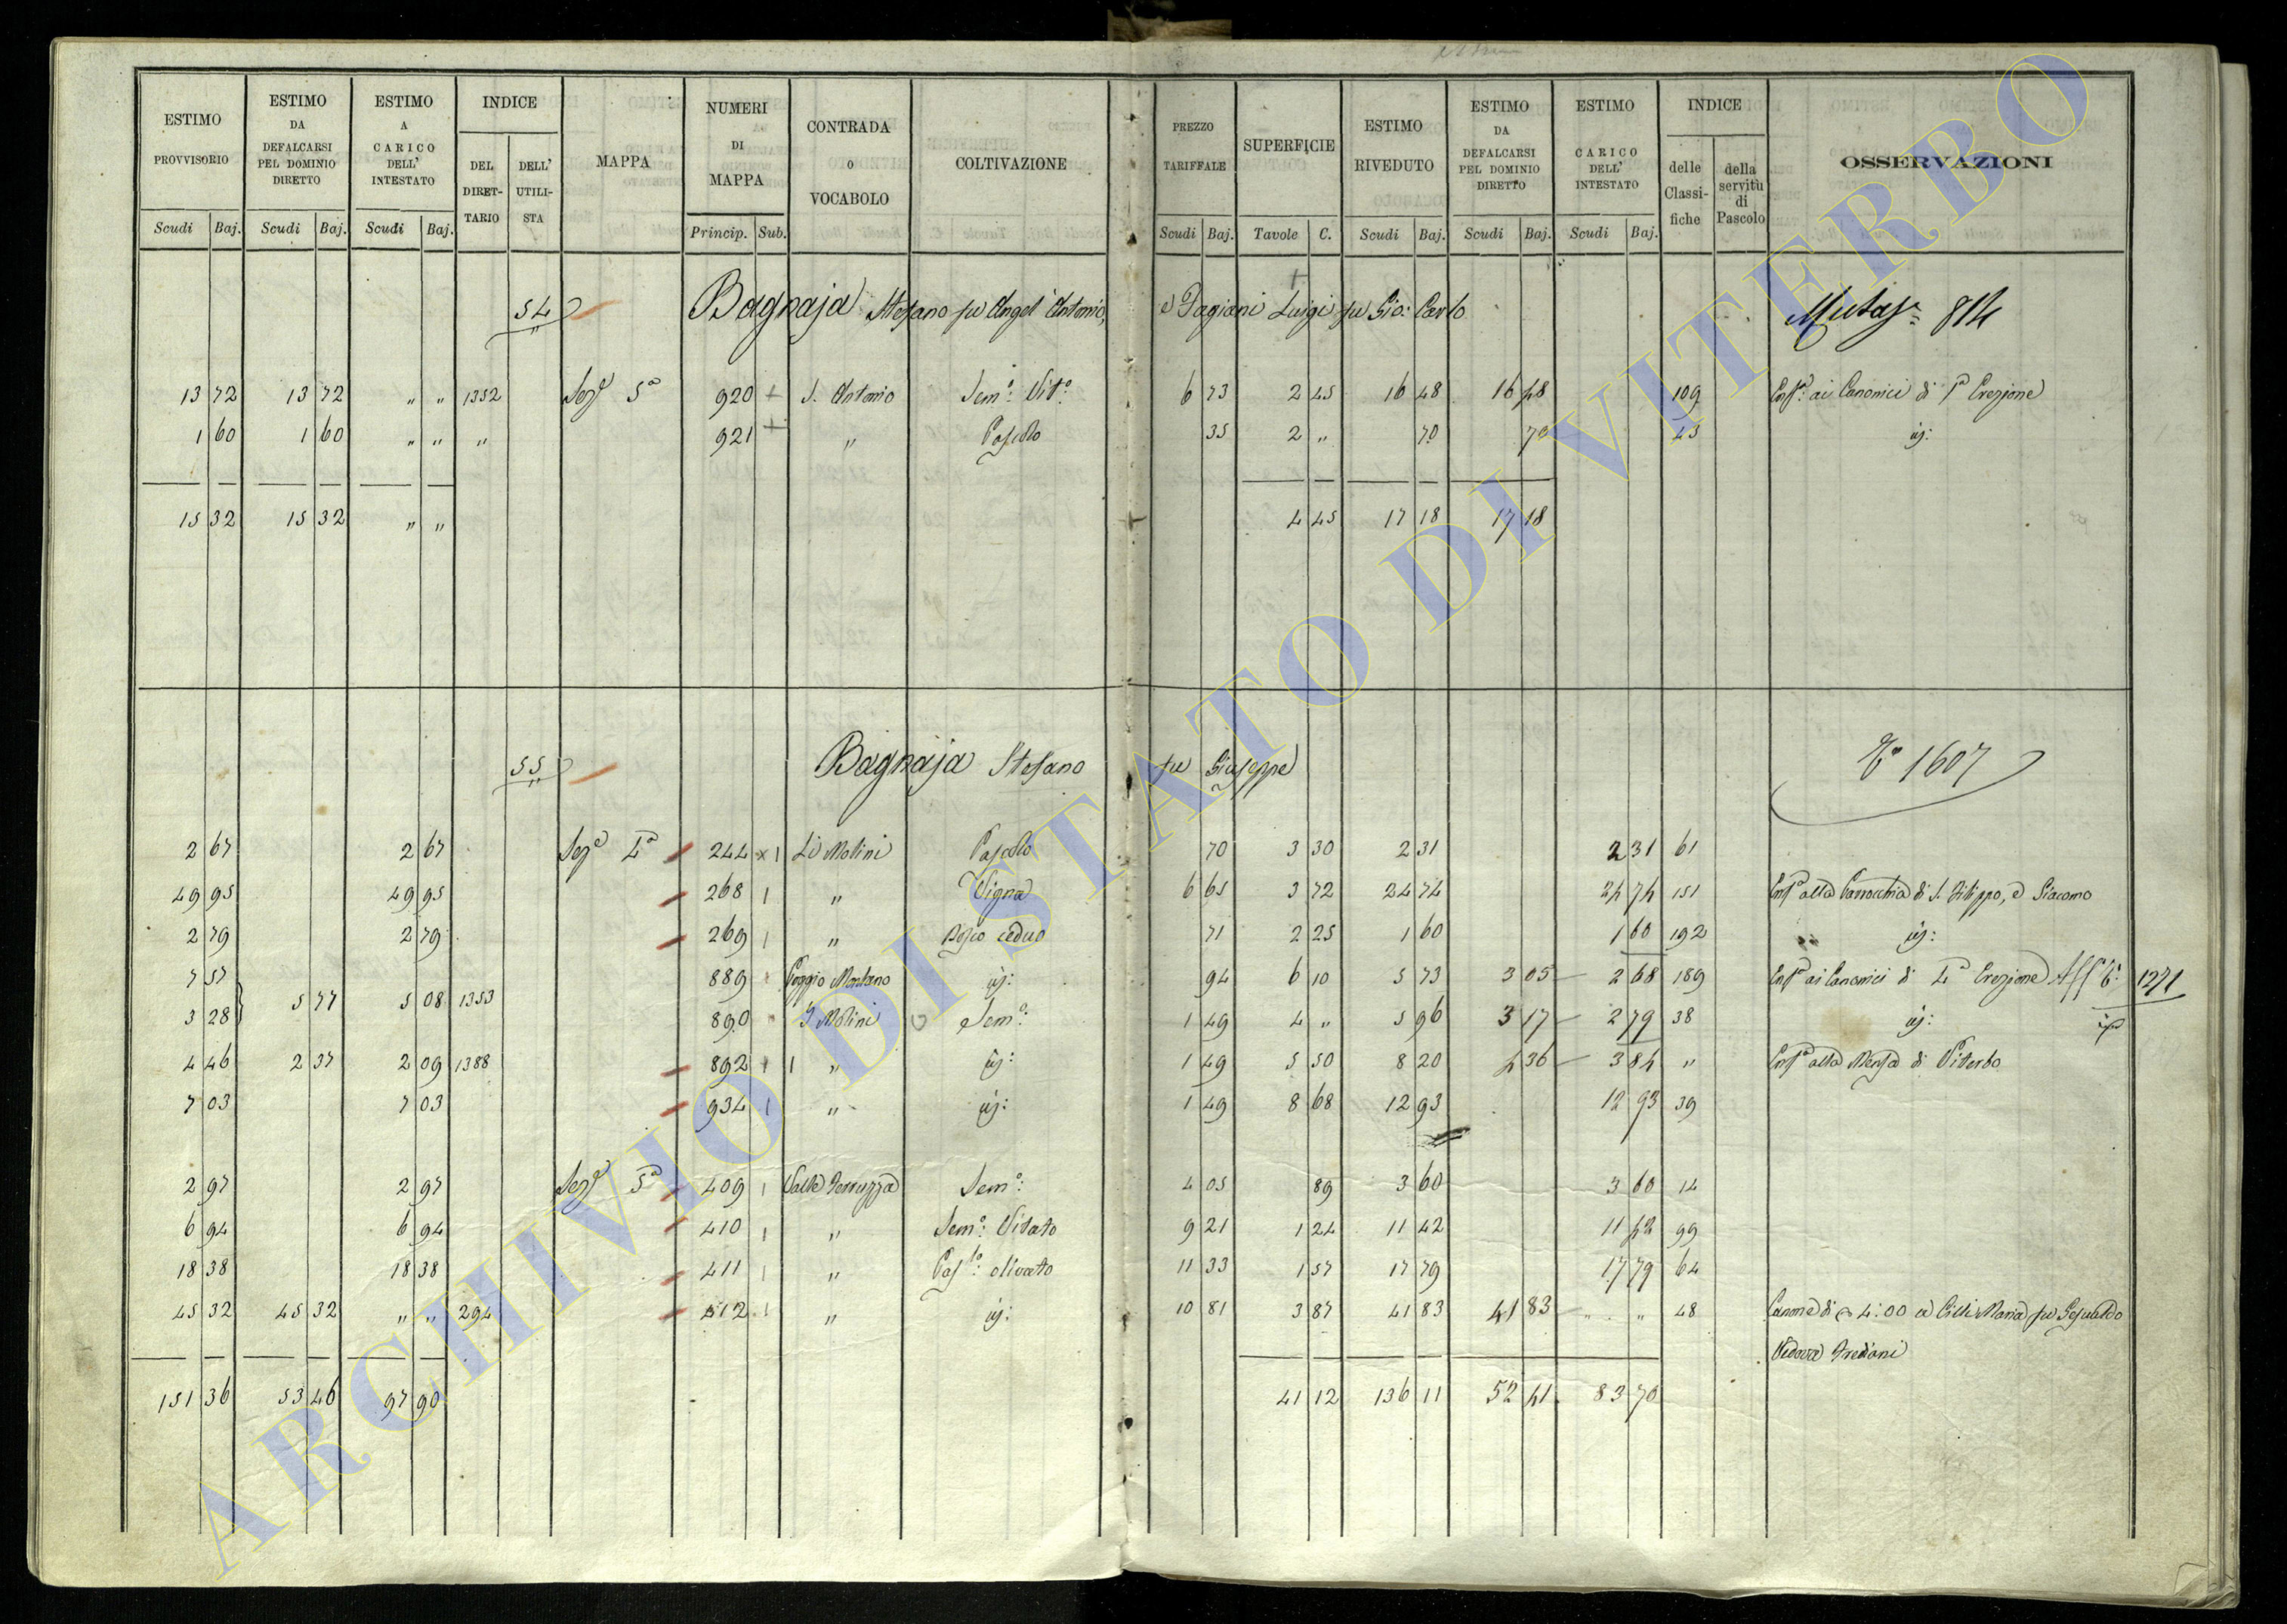 ESTIMO PROVVISORIO Scudi Baj. ESTIMO DA DEFALCARSI PEL DOMINIO DIRETTO Scudi Baj. ESTIMO A CARICO DELL' INTESTATO Scudi Baj. INDICE DEL DIRET- TARIO DELL' UTILI- STA MAPPA NUMERI DI MAPPA Princip. Sub. CONTRADA o VOCABOLO COLTIVAZIONE PREZZO TARIFFALE Scudi Baj. SUPERFICIE Tavole C. ESTIMO RIVEDUTO Scudi Baj. ESTIMO DA DEFALCARSI PEL DOMINIO DIRETTO Scudi Baj. ESTIMO CARICO DELL' INTESTATO Scudi Baj. INDICE delle Classi- fiche della servitù di Pascolo OSSERVAZIONI
54 Bagnaja Stefano fu Angel' Antonio, e Pagiani Luigi fu Gio: Carlo 814
13 72 13 72 " " 1352 Sez.e 5a 920 + S. Antonio Sem.o: Vit.o 6 73 2 45 16 48 16 48 109 ai Canonici di 1a Erezione
1 60 1 60 " " " 921 + " Pascolo 35 2 " 70 70 45 id:
15 32 15 32 " " 4 45 17 18 17 18
55 Bagnaja Stefano fu Giuseppe 1607
2 67 2 67 Sez.e 4a 244 x 1 Li Molini Pascolo 70 3 30 2 31 2 31 61
49 95 49 95 268 1 " Vigna 6 65 3 72 24 74 24 74 151 alla Parrocchia di S. Filippo, e Giacomo
2 79 2 79 269 1 " Bosco ceduo 71 2 25 1 60 1 60 192 id:
7 57 889 Poggio Montano id: 94 6 10 5 73 3 05 2 68 189 ai Canonici di 4a Erezione 1271
5 77 5 08 1353
3 28 890 I Molini Sem.o: 1 49 4 " 5 96 3 17 2 79 38 id:
4 46 2 37 2 09 1388 892 1 " id: 1 49 5 50 8 20 4 36 3 84 " alla Mensa di Viterbo
7 03 7 03 934 1 " id: 1 49 8 68 12 93 12 93 39
2 97 2 97 Sez.e 5a 409 1 Valle 4 05 89 3 60 3 60 14
6 94 6 94 410 1 " Sem.o: Vitato 9 21 1 24 11 42 11 42 99
18 38 18 38 411 1 " Pas.lo: olivato 11 33 1 57 17 79 17 79 64
45 32 45 32 " " 294 412 1 " id: 10 81 3 87 41 83 41 83 " " 48 Canone di 4:00 a Cilli Maria fu Gesualdo
Vedova Frediani
151 36 53 46 97 90 41 12 136 11 52 41 83 70
ARCHIVIO DI STATO DI VITERBO